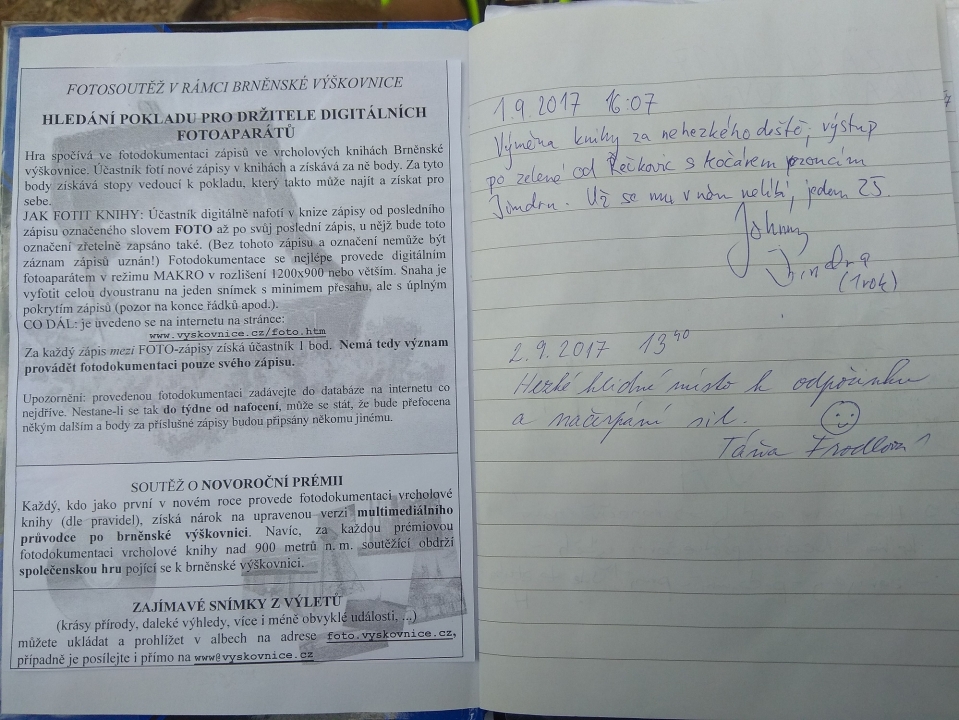 FOTOSOUTĚŽ V RÁMCI BRNĚNSKÉ VÝŠKOVNICE
HLEDÁNÍ POKLADU PRO DRŽITELE DIGITÁLNÍCH
FOTOAPARÁTŮ
Hra spočívá ve fotodokumentaci zápisů ve vrcholových knihách Brněnské
výškovnice. Účastník fotí nové zápisy v knihách a získává za ně body. Za tyto
body získává stopy vedoucí k pokladu, který takto může najít a získat pro
sebe.
JAK FOTIT KNIHY: Účastník digitálně nafotí v knize zápisy od posledního
zápisu označeného slovem FOTO až po svůj poslední zápis, u nějž bude toto
označení zřetelně zapsáno také. (Bez tohoto zápisu a označení nemůže být
záznam zápisů uznán!) Fotodokumentace se nejlépe provede digitálním
fotoaparátem v režimu MAKRO v rozlišení 1200x900 nebo větším. Snaha je
vyfotit celou dvoustranu na jeden snímek s minimem přesahu, ale s úplným
pokrytím zápisů (pozor na konce řádků apod.).
CO DÁL: je uvedeno se na internetu na stránce:
www.vyskovnice.cz/foto.htm
Za každý zápis mezi FOTO-zápisy získá účastník 1 bod. Nemá tedy význam
provádět fotodokumentaci pouze svého zápisu.
Upozornění: provedenou fotodokumentaci zadávejte do databáze na internetu co
nejdříve. Nestane-li se tak do týdne od nafocení, může se stát, že bude přefocena
někým dalším a body za příslušné zápisy budou připsány někomu jinému.
SOUTĚŽ O NOVOROČNÍ PRÉMII
Každý, kdo jako první v novém roce provede fotodokumentaci vrcholové
knihy (dle pravidel), získá nárok na upravenou verzi multimediálního
průvodce po brněnské výškovnici. Navíc, za každou prémiovou
fotodokumentaci vrcholové knihy nad 900 metrů n. m. soutěžící obdrží
společenskou hru pojící se k brněnské výškovnici.
ZAJÍMAVÉ SNÍMKY Z VÝLETŮ
(krásy přírody, daleké výhledy, více i méně obvyklé události, ...)
můžete ukládat a prohlížet v albech na adrese foto.vyskovnice.cz,
případně je posílejte i přímo na www@vyskovnice.cz
1.9.2017 16:07
Výměna knihy za nehezkého deště, výstup
po zelené od Řečkovic s kočárem
Jindru. Už se mu v něm nelíbí, jedem
Johnny
Jindra
(1 rok)
2.9.2017 13 40
Hezké klidné místo k odpočinku
a načerpání sil.
Táňa